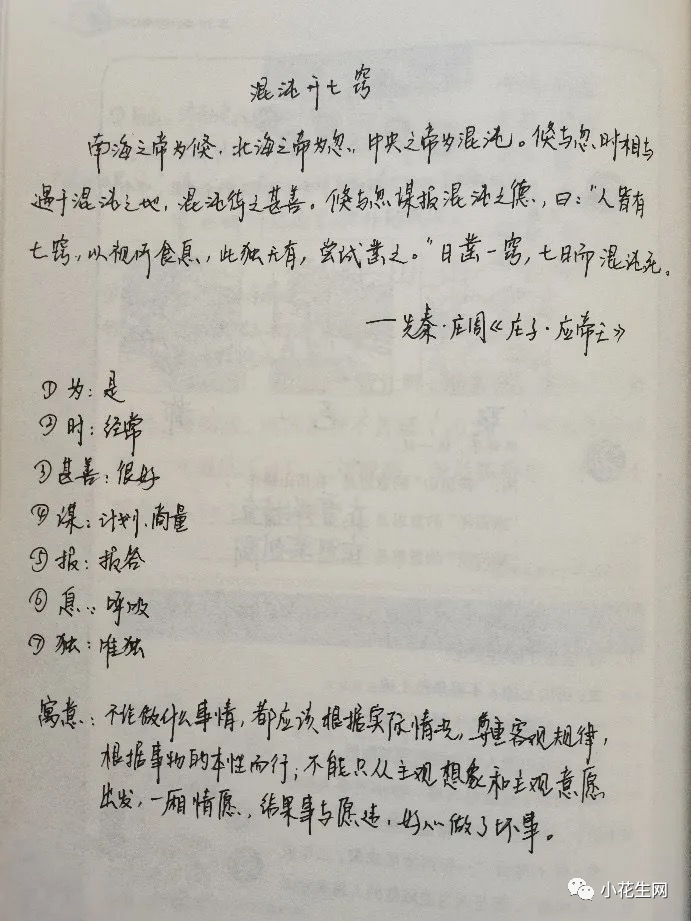 混沌开七窍
南海之帝为倏，北海之帝为忽，中央之帝为混沌。倏与忽时相与
遇于混沌之地，混沌待之甚善。倏与忽谋报混沌之德，曰："人皆有
七窍，以视听食息，此独无有，尝试凿之。"日凿一窍，七日而混沌死。
——先秦·庄周《庄子·应帝王》
①为：是
②时：经常
③甚善：很好
④谋：计划、商量
⑤报：报答
⑥息：呼吸
⑦独：唯独
寓意：不论做什么事情，都应该根据实际情况，尊重客观规律，
根据事物的本性而行；不能只从主观想象和主观意愿
出发，一厢情愿，结果事与愿违，好心做了坏事。
小花生网